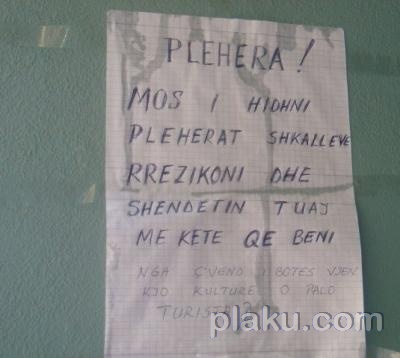 PLEHERA!
MOS I HIDHNI
PLEHERAT SHKALLEVE
RREZIKONI DHE
SHENDETIN TUAJ
ME KETE QE BENI
NGA Ç'VEND I BOTES VJEN
KJO KULTURE O PALO
TURISTA
plaku.com